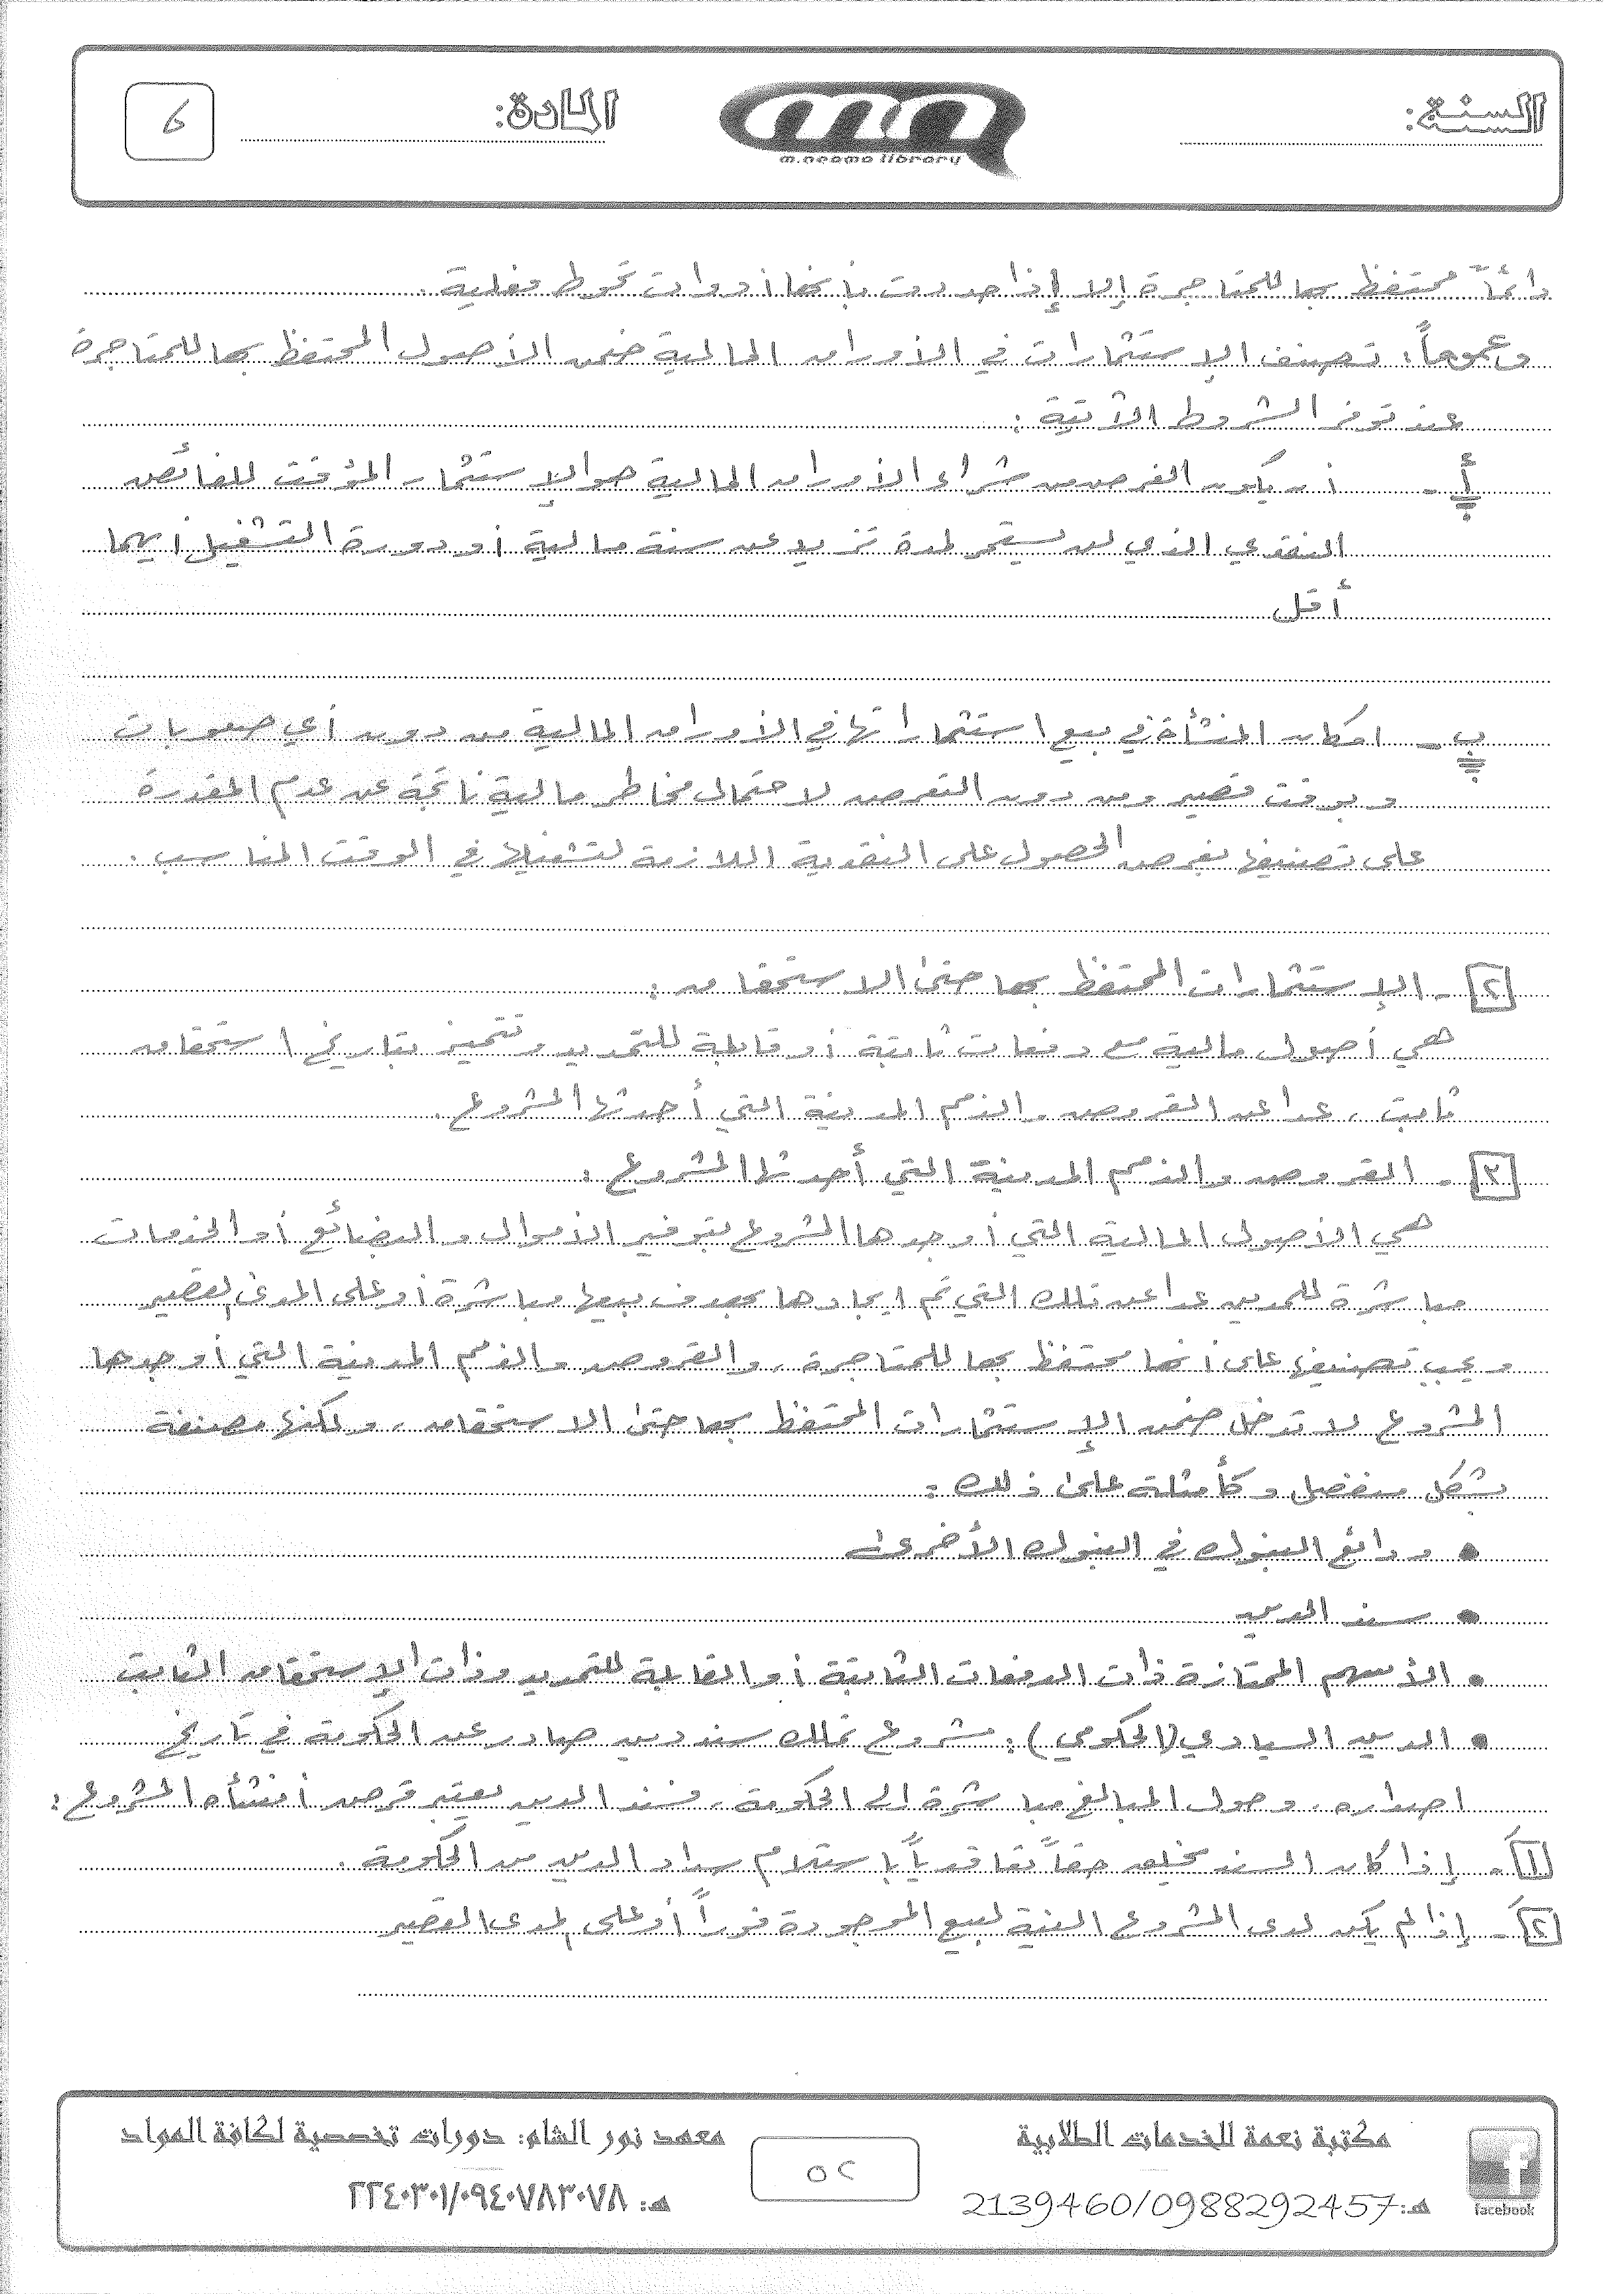 السنة:
m.neama library
المادة:
6
دائماً محتفظ بها للمتاجرة إلا إذا حددت بأنها أدوات تحوط فعلية.
وعموماً: تصنف الإستثمارات في الأوراق المالية ضمن الأصول المحتفظ بها للمتاجرة
عند توفر الشروط الآتية:
أ - أن يكون الغرض من شراء الأوراق المالية هو الإستثمار المؤقت للفائض
النقدي الذي لن يستمر لمدة تزيد عن سنة مالية أو دورة التشغيل أيهما
أقل
ب - امكان المنشأة في بيع استثماراتها في الأوراق المالية من دون أي صعوبات
وبوقت قصير ومن دون التعرض لاحتمال مخاطر مالية ناتجة عن عدم المقدرة
على تصنيفها بغرض الحصول على النقدية اللازمة لتشغيلها في الوقت المناسب.
٢ - الإستثمارات المحتفظ بها حتى الاستحقاق:
هي أصول مالية مع دفعات ثابتة أو قابلة للتحديد وتتميز بتاريخ استحقاق
ثابت، عدا عن القروض والذمم المدينة التي أحدثها المشروع.
٣ - القروض والذمم المدينة التي أحدثها المشروع:
هي الأصول المالية التي أوجدها المشروع بتوفير الأموال والبضائع أو الخدمات
مباشرة للمدين عدا عن تلك التي تم ايجادها بهدف بيعها مباشرة أو على المدى القصير
ويجب تصنيفها على أنها محتفظ بها للمتاجرة، والقروض والذمم المدينة التي أوجدها
المشروع لا تدخل ضمن الإستثمارات المحتفظ بها حتى الاستحقاق، ولكنها مصنفة
بشكل منفصل وكأمثلة على ذلك:
• ودائع البنوك في البنوك الأخرى
• سند الدين
• الأسهم الممتازة ذات الدفعات الثابتة أو القابلة للتحديد وذات الإستحقاق الثابت
• الدين السيادي (الحكومي): مشروع تملك سند دين صادر عن الحكومة في تاريخ
اصداره، وحول المبالغ مباشرة إلى الحكومة، فسند الدين يعتبر قرض أنشأه المشروع:
١ - إذا كان السند يخلق حقاً تعاقدياً باستلام سداد الدين من الحكومة.
٢ - إذا لم يكن لدى المشروع النية لبيع الموجودة فوراً أو على المدى القصير
facebook
مكتبة نعمة للخدمات الطلابية
هـ: 2139460/0988292457
٥٢
معهد نور الشام: دورات تخصصية لكافة المواد
هـ: ٢٢٤٠٣٠١/٠٩٤٠٧٨٣٠٧٨